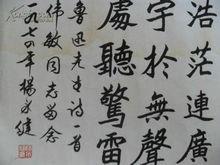 浩茫連廣
宇於無聲
處聽驚雷
魯迅先生詩一首
偉敏同志留念
一九七四年楊